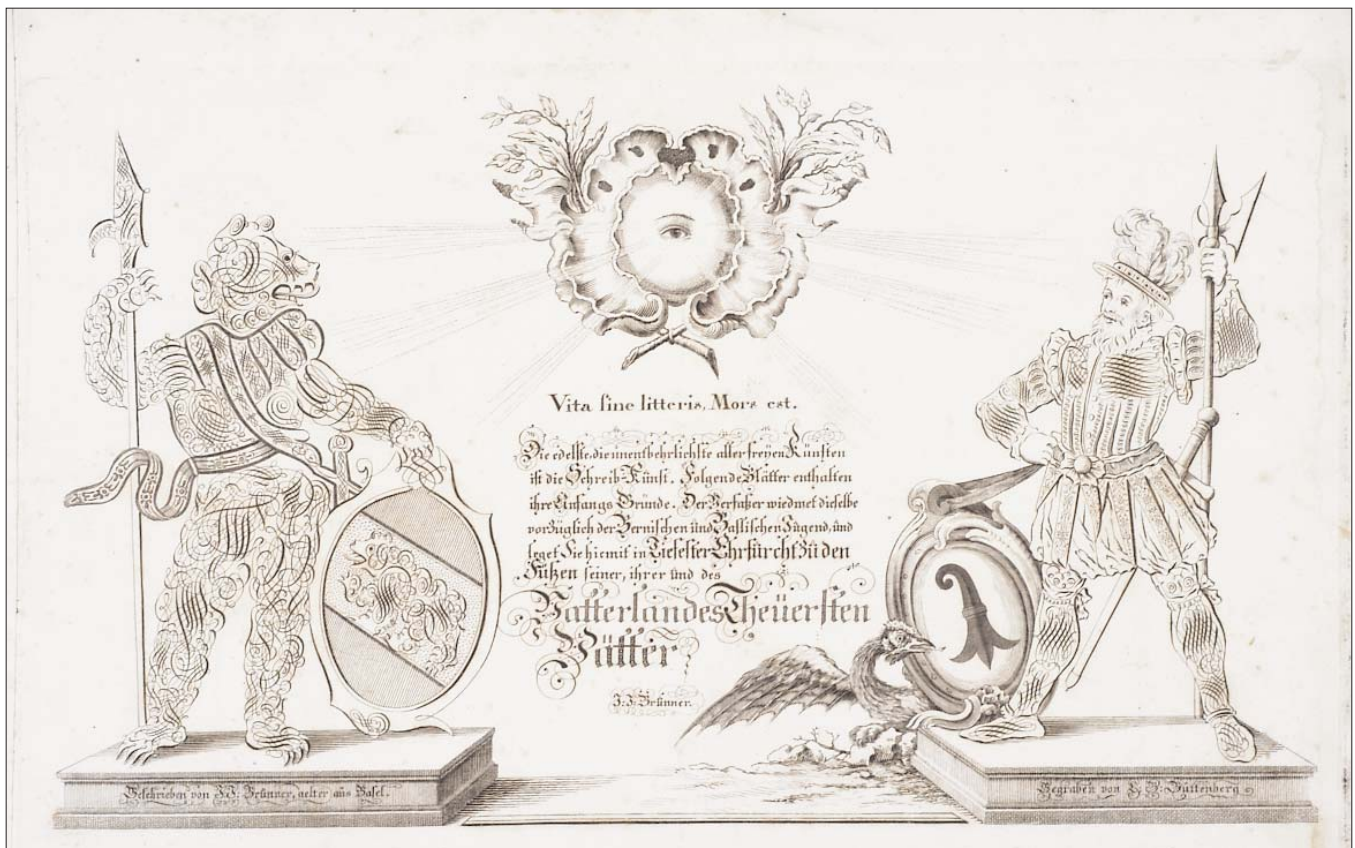 Vita sine litteris, Mors est.
Die edelste, die unentbehrlichste aller freyen Künsten
ist die Schreib-Kunst. Folgende Blätter enthalten
ihre Anfangs Gründe. Der Verfaßer wiedmet dieselbe
vorzüglich der Bernischen und Baslischen Jugend, und
leget Sie hiemit in Tiefester Ehrfürcht Zü den
Füßen seiner, ihrer und des
Vatterlandes Theüersten
Vätter
J. J. Brünner.
Geschrieben von J. J. Brünner, aelter aus Basel.
Gegraben von